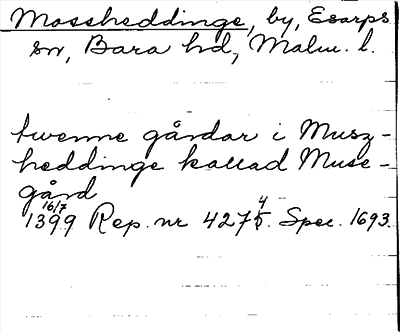 Mossheddinge, by, Esarps
sn, Bara hd, Malm. l.
twenne gårdar i Musz-
heddinge kallad Muse-
gård
16/7
1399 Rep. nr 4275. Spec. 1693.
4